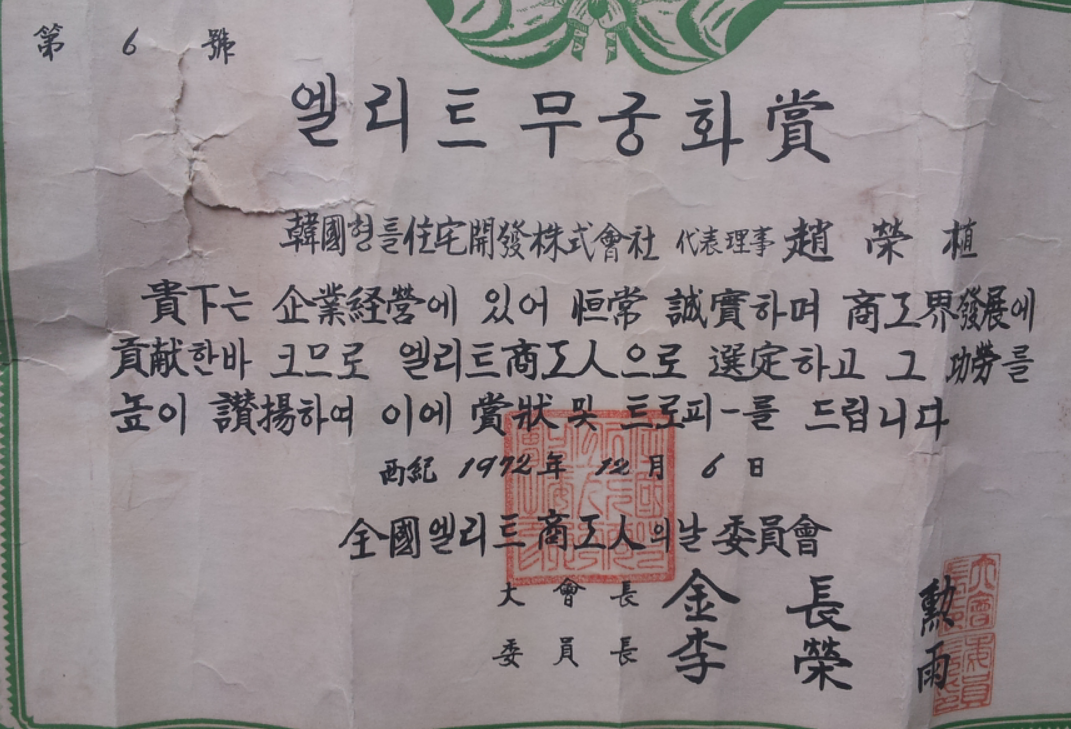 第 6 號
엘리트 무궁화賞
韓國형틀住宅開發株式會社 代表理事 趙榮植
貴下는 企業経營에 있어 恒常 誠實하며 商工界發展에
貢献한바 크므로 엘리트商工人으로 選定하고 그 功勞를
높이 讃揚하여 이에 賞狀 및 트로피-를 드립니다
西紀 1972年 12月 6日
全國엘리트商工人의날 委員會
大會長 金長勲
委員長 李榮雨